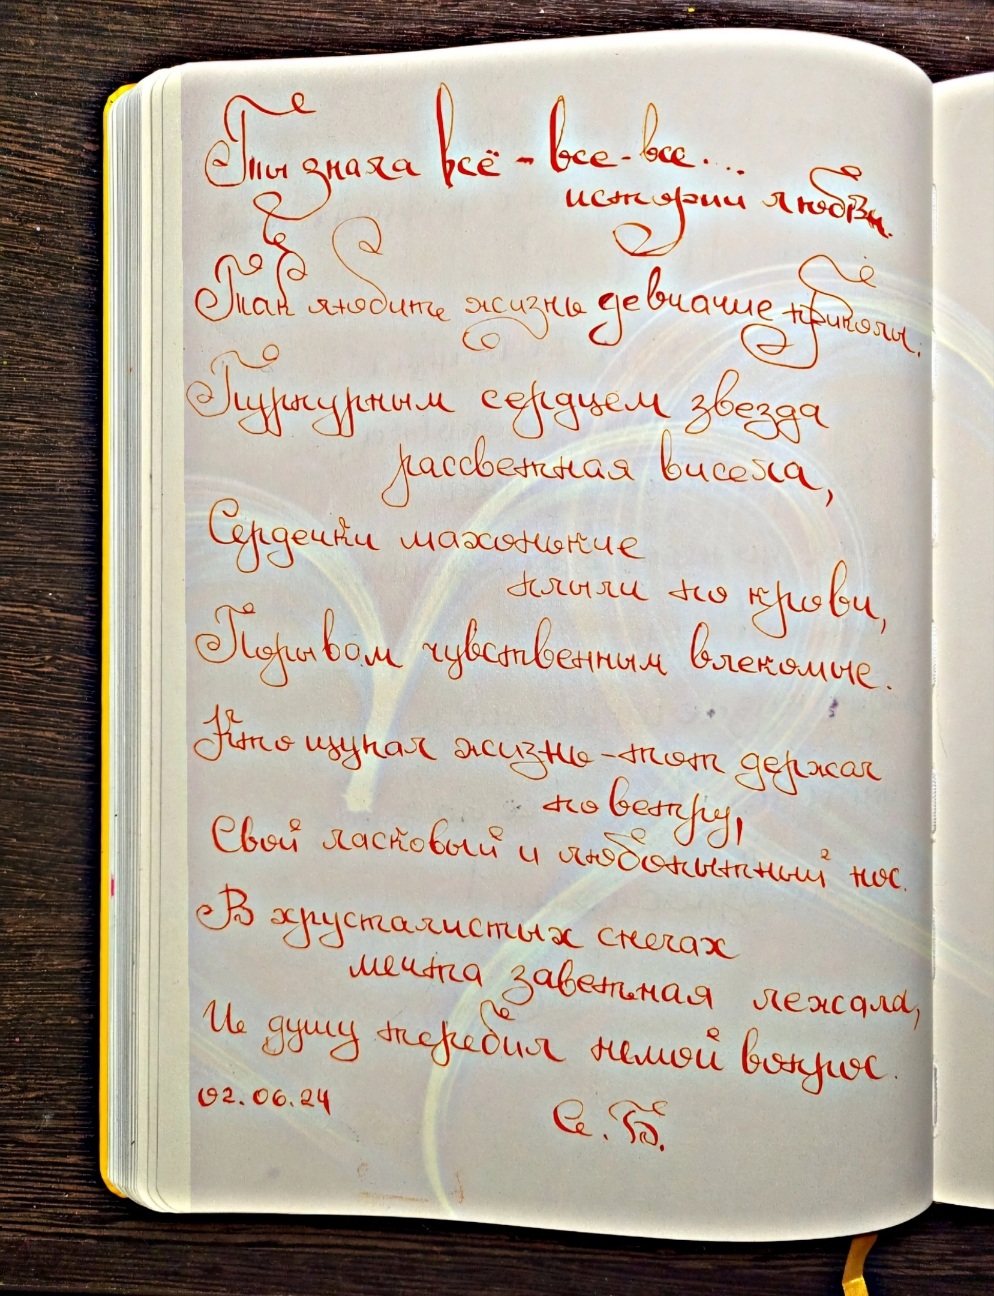 Ты знала всё-все-все...
истории любви.
Так любите жизнь девчачие приколы.
Пурпурным сердцем звезда
рассветная висела,
Сердечки махонькие
плыли по крови,
Порывам чувственным влекомые.
Кто щупал жизнь-тот держал
по ветру,
Свой ласковый и любопытный нос.
В хрусталистых снегах
мечта заветная лежала,
И душу теребил немой вопрос.
02.06.24
С. Б.